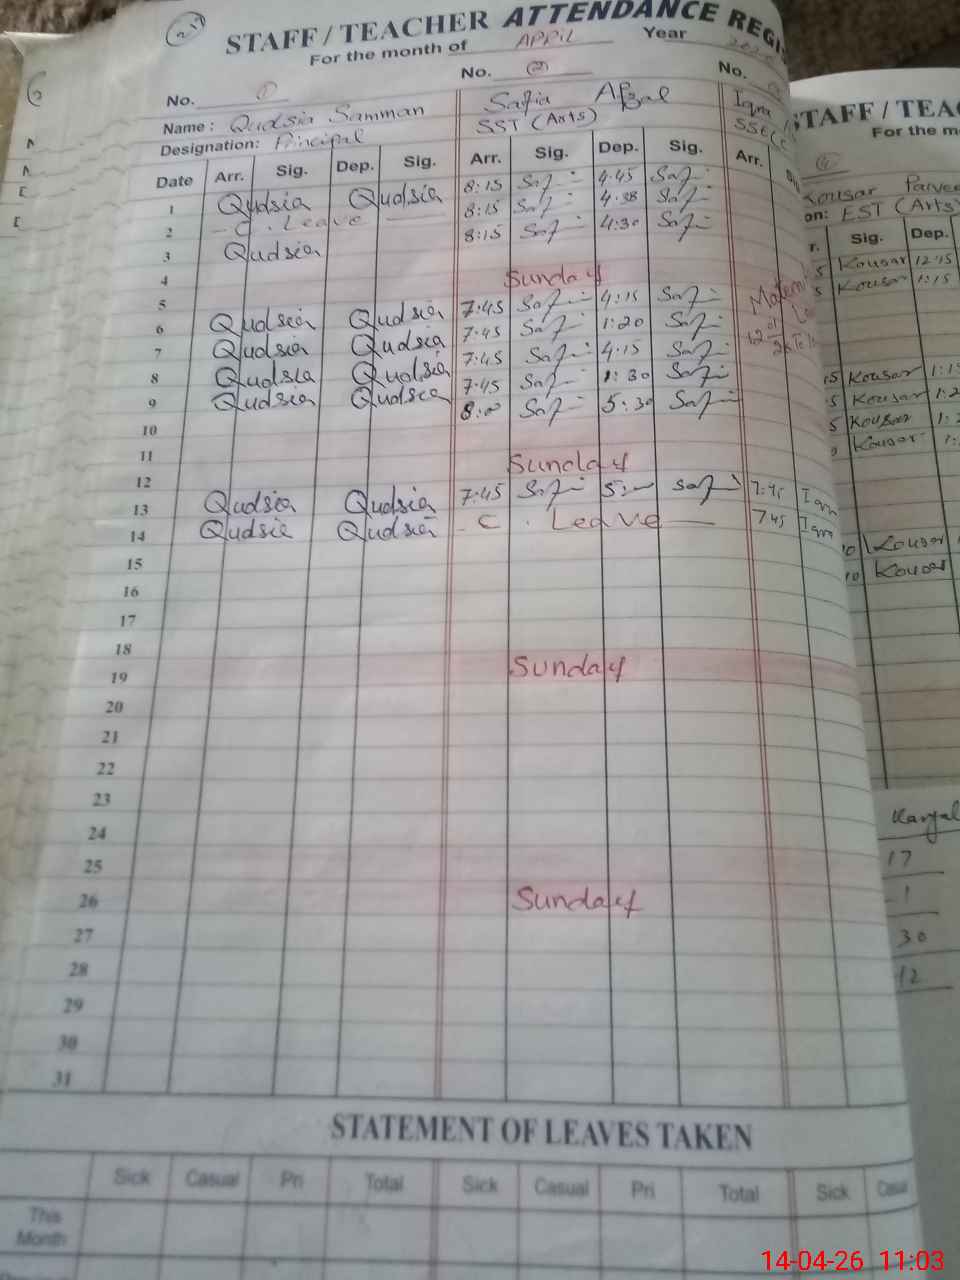 STAFF / TEACHER ATTENDANCE REGI
For the month of APPil Year
No. 1 No. 2 No.
Name : Qudsia Samman Safia Afzal Iqra
Designation: Principal SST (Arts)
Date Arr. Sig. Dep. Sig. Arr. Sig. Dep. Sig. Arr.
1 Qudsia Qudsia 8:15 Saf 4:45 Saf
2 - C. Leave 8:15 Saf 4:38 Saf
3 Qudsia 8:15 Saf 4:30 Saf
4
5 Sunday
6 Qudsia Qudsia 7:45 Saf 4:15 Saf
7 Qudsia Qudsia 7:45 Saf 1:20 Saf
8 Qudsia Qudsia 7:45 Saf 4:15 Saf
9 Qudsia Qudsia 7:45 Saf 1:30 Saf
10 8:00 Saf 5:30 Saf
11
12 Sunday
13 Qudsia Qudsia 7:45 Saf Saf 7:45 Iqra
14 Qudsia Qudsia - C. Leave 7:45 Iqra
15
16
17
18
19 Sunday
20
21
22
23
24
25
26 Sunday
27
28
29
30
31
STATEMENT OF LEAVES TAKEN
Sick Casual Pri Total Sick Casual Pri Total Sick Casual
This
Month
STAFF / TEAC
For the m
Kousar Parvee
on: EST (Arts)
r. Sig. Dep.
5 Kousar 12:15
5 Kousar 1:15
15 Kousar 1:15
5 Kousar 1:2
5 Kousar 1:
0 Kousar 1:
10 Kousar
10 Kousar
17
1
30
12
14-04-26 11:03